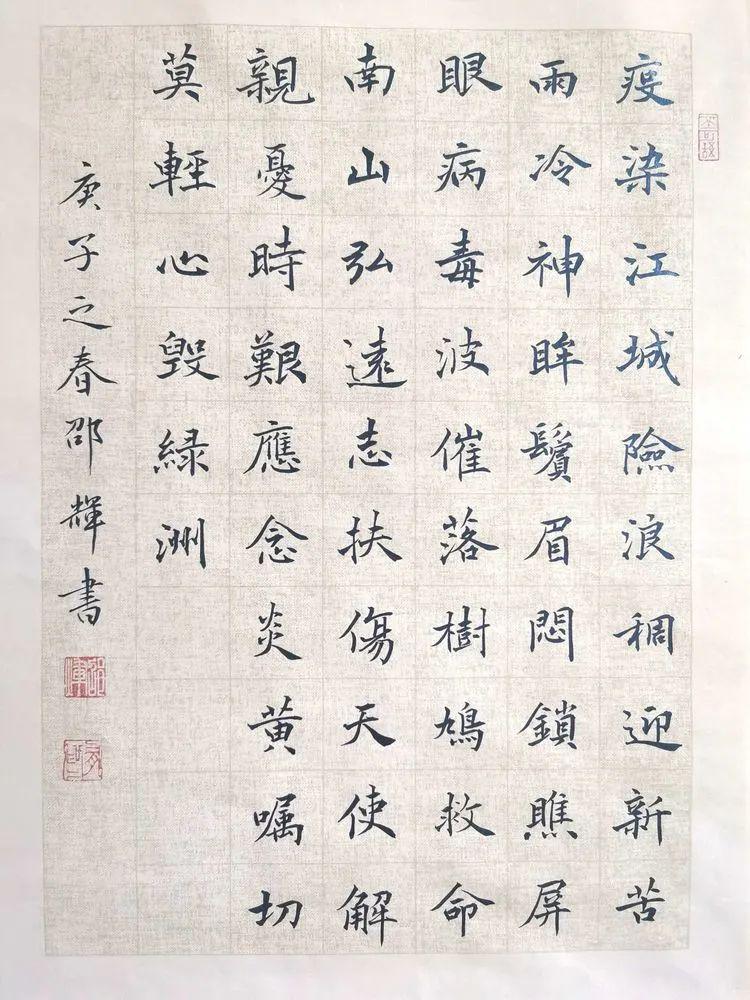 疫染江城險浪稠迎新苦
雨冷神眸鬢眉悶鎖瞧屏
眼病毒波催落樹鳩救命
南山弘遠志扶傷天使解
親憂時艱應念炎黃嘱切
莫輕心毀緑洲
庚子之春邵輝書